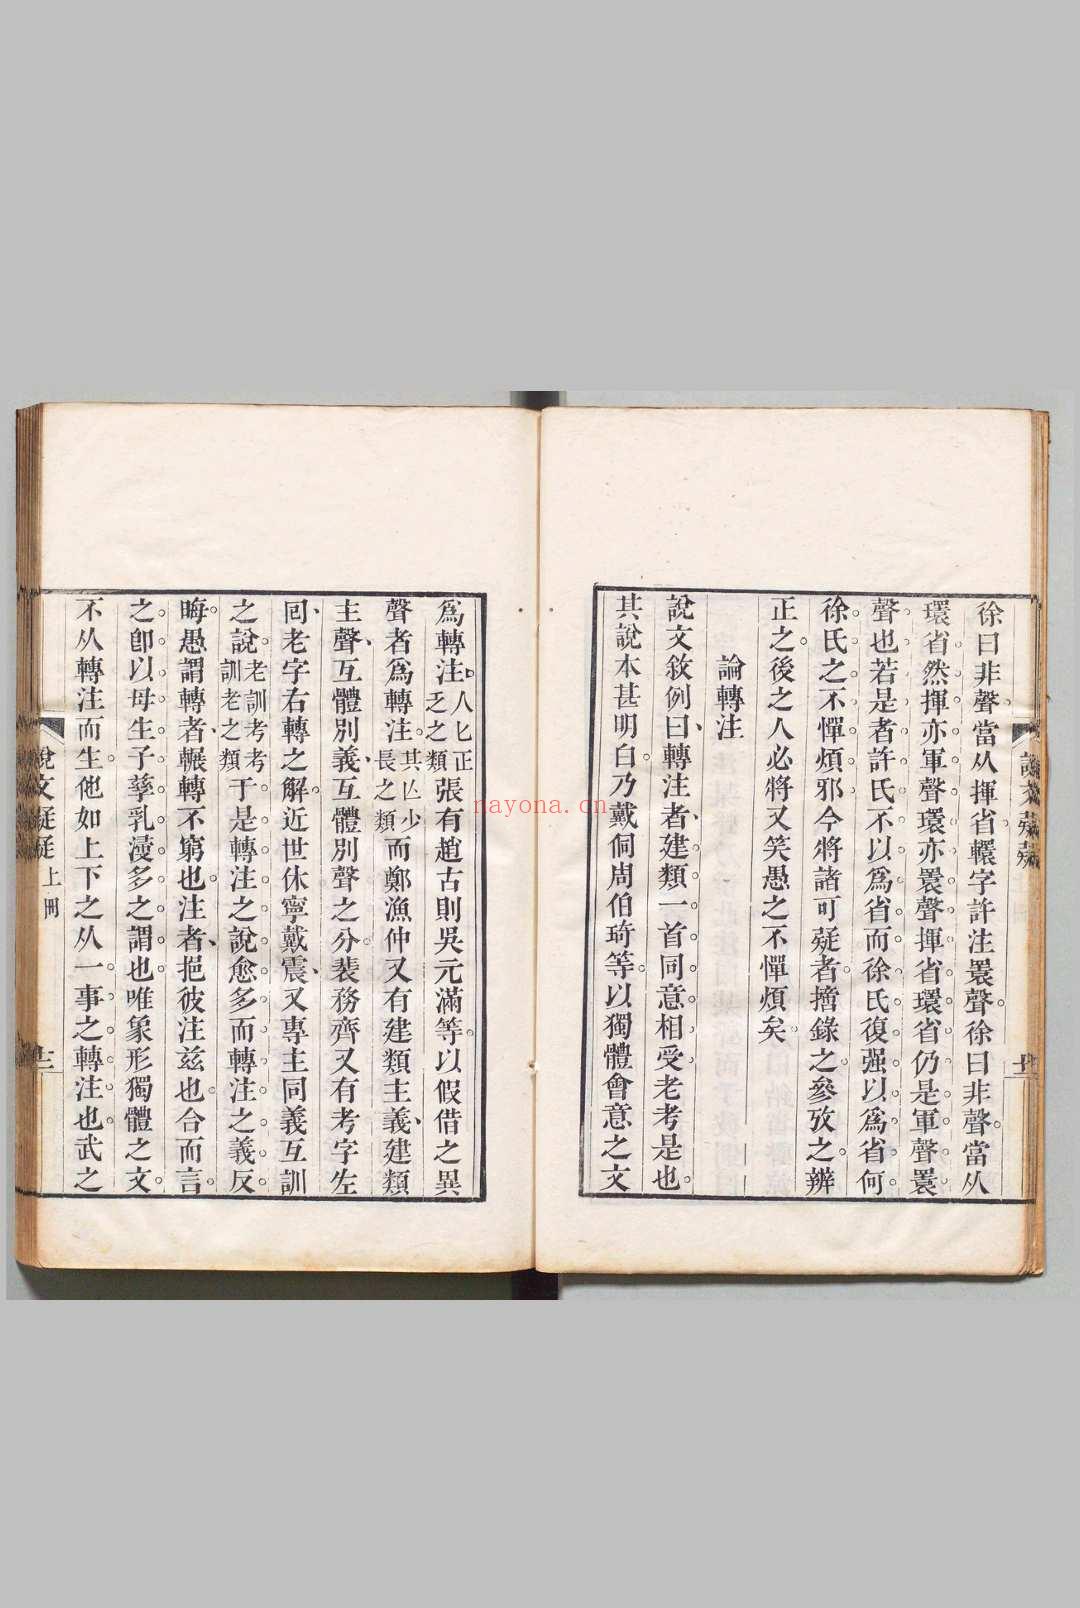 徐曰非聲當从揮省轘字許注睘聲徐曰非聲當从
環省然揮亦軍聲環亦睘聲揮省環省仍是軍聲睘
聲也若是者許氏不以爲省而徐氏復强以爲省何
徐氏之不憚煩邪今將諸可疑者擔錄之參攷之辨
正之後之人必將又笑愚之不憚煩矣
論轉注
說文敘例曰轉注者建類一首同意相受老考是也
其說本甚明白乃戴侗周伯琦等以獨體會意之文
爲轉注人匕正乏之類張有趙古則吳元滿等以假借之異
聲者爲轉注其亾少長之類而鄭漁仲又有建類主義建類
主聲互體別義互體別聲之分裴務齊又有考字左
回老字右轉之解近世休寧戴震又專主同義互訓
之說老訓考考訓老之類于是轉注之說愈多而轉注之義反
晦愚謂轉者輾轉不窮也注者挹彼注茲也合而言
之卽以母生子孳乳漫多之謂也唯象形獨體之文
不从轉注而生他如上下之从一事之轉注也武之
說文疑疑 上冊
十二
nayona.cn